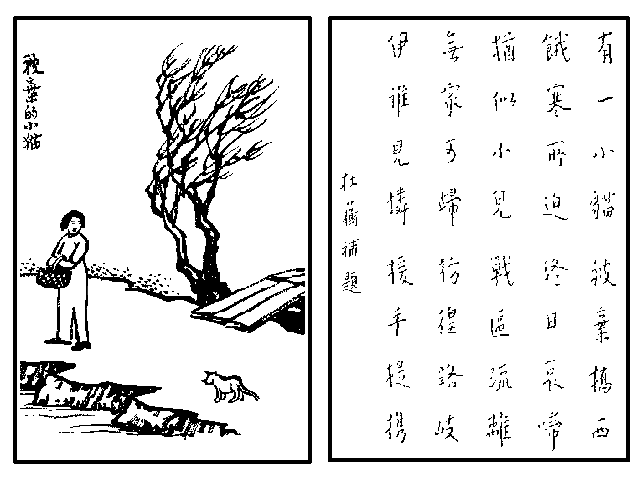 被棄的小猫
有一小貓被棄橋西
餓寒所迫終日哀啼
猶似小兒戰區流離
無家可歸彷徨路岐
伊誰見憐援手提携
杜蘅補題